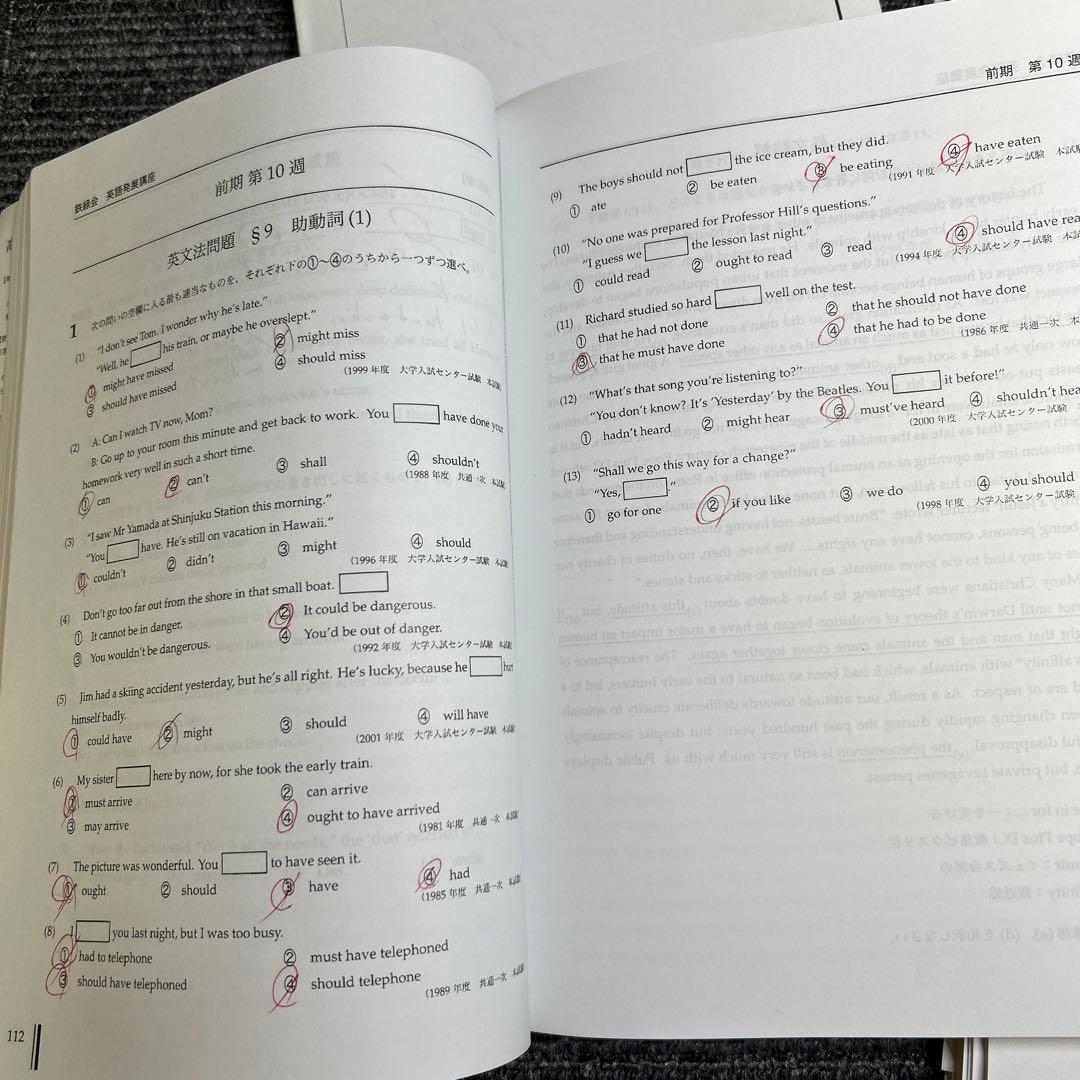 鉄緑会 英語発展講座
前期 第10週
英文法問題 §9 助動詞 (1)
1 次の問いの空欄に入る最も適当なものを，それぞれ下の①～④のうちから一つずつ選べ。
(1) "I don't see Tom. I wonder why he's late."
"Well, he his train, or maybe he overslept."
① might have missed ② might miss
③ should have missed ④ should miss
(1999年度 大学入試センター試験 本試験
(2) A: Can I watch TV now, Mom?
B: Go up to your room this minute and get back to work. You have done your
homework very well in such a short time.
① can ② can't ③ shall ④ shouldn't
(1988年度 共通一次 本試
(3) "I saw Mr Yamada at Shinjuku Station this morning."
"You have. He's still on vacation in Hawaii."
① couldn't ② didn't ③ might ④ should
(1996年度 大学入試センター試験 本試験
(4) Don't go too far out from the shore in that small boat.
① It cannot be in danger. ② It could be dangerous.
③ You wouldn't be dangerous. ④ You'd be out of danger.
(1992年度 大学入試センター試験 本試験
(5) Jim had a skiing accident yesterday, but he's all right. He's lucky, because he hurt
himself badly.
① could have ② might ③ should ④ will have
(2001年度 大学入試センター試験 本試
(6) My sister here by now, for she took the early train.
① must arrive ② can arrive
③ may arrive ④ ought to have arrived
(1981年度 共通一次 本試
(7) The picture was wonderful. You to have seen it.
① ought ② should ③ have ④ had
(1985年度 共通一次 本試
(8) I you last night, but I was too busy.
① had to telephone ② must have telephoned
③ should have telephoned ④ should telephone
(1989年度 共通一次 本試
112
前期 第10週
(9) The boys should not the ice cream, but they did.
① ate ② be eaten ③ be eating ④ have eaten
(1991年度 大学入試センター試験 本試
(10) "No one was prepared for Professor Hill's questions."
"I guess we the lesson last night."
① could read ② ought to read ③ read ④ should have rea
(1994年度 大学入試センター試験 本試
(11) Richard studied so hard well on the test.
① that he had not done ② that he should not have done
③ that he must have done ④ that he had to be done
(1986年度 共通一次 本試
(12) "What's that song you're listening to?"
"You don't know? It's 'Yesterday' by the Beatles. You it before!"
① hadn't heard ② might hear ③ must've heard ④ shouldn't hea
(2000年度 大学入試センター試験
(13) "Shall we go this way for a change?"
"Yes, ."
① go for one ② if you like ③ we do ④ you should
(1998年度 大学入試センター試験